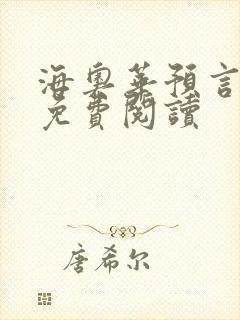 海奧華預言
免費閱讀
唐希尔